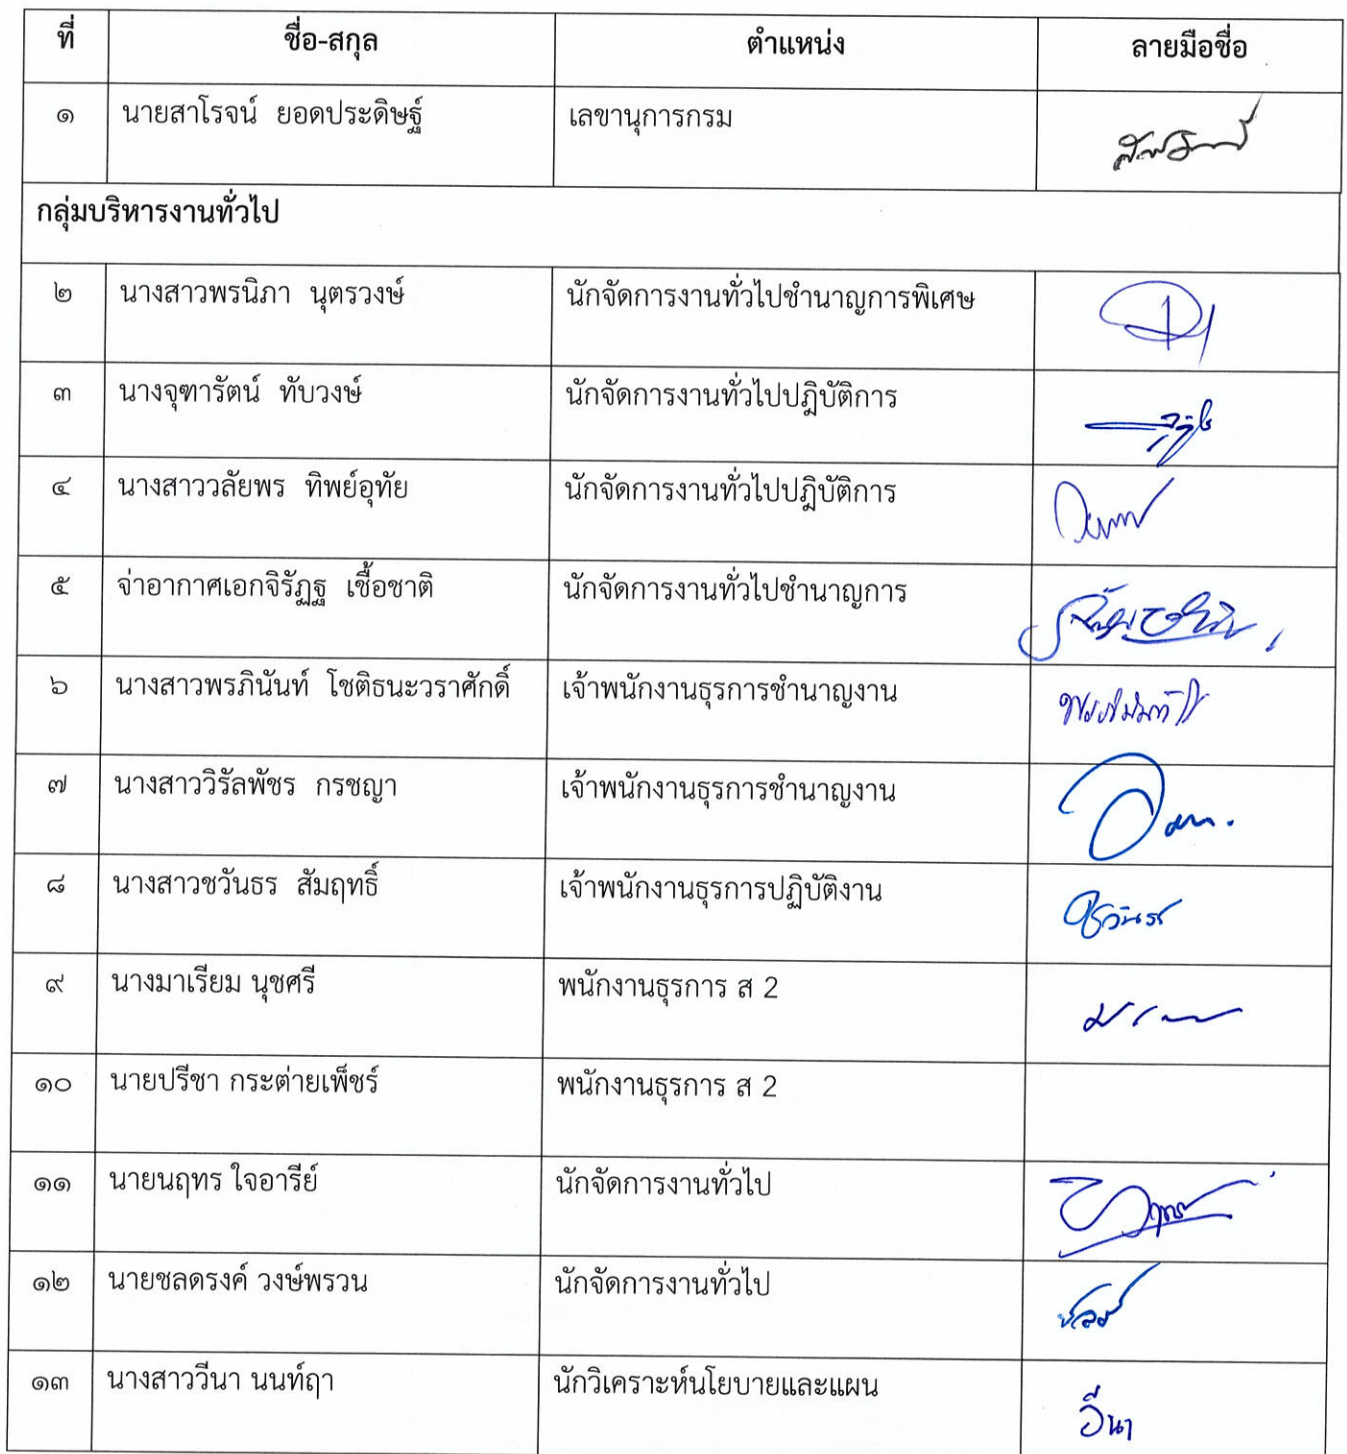 ที่ ชื่อ-สกุล ตำแหน่ง ลายมือชื่อ
๑ นายสาโรจน์ ยอดประดิษฐ์ เลขานุการกรม
กลุ่มบริหารงานทั่วไป
๒ นางสาวพรนิภา นุตรวงษ์ นักจัดการงานทั่วไปชำนาญการพิเศษ
๓ นางจุฑารัตน์ ทับวงษ์ นักจัดการงานทั่วไปปฏิบัติการ
๔ นางสาววลัยพร ทิพย์อุทัย นักจัดการงานทั่วไปปฏิบัติการ
๕ จ่าอากาศเอกจิรัฏฐ เชื้อชาติ นักจัดการงานทั่วไปชำนาญการ
๖ นางสาวพรภินันท์ โชติธนะวราศักดิ์ เจ้าพนักงานธุรการชำนาญงาน
๗ นางสาววิรัลพัชร กรชญา เจ้าพนักงานธุรการชำนาญงาน
๘ นางสาวชวันธร สัมฤทธิ์ เจ้าพนักงานธุรการปฏิบัติงาน ชวันธร
๙ นางมาเรียม นุชศรี พนักงานธุรการ ส 2
๑๐ นายปรีชา กระต่ายเพ็ชร์ พนักงานธุรการ ส 2
๑๑ นายนฤทร ใจอารีย์ นักจัดการงานทั่วไป
๑๒ นายชลดรงค์ วงษ์พรวน นักจัดการงานทั่วไป
๑๓ นางสาววีนา นนท์ฤา นักวิเคราะห์นโยบายและแผน วีนา